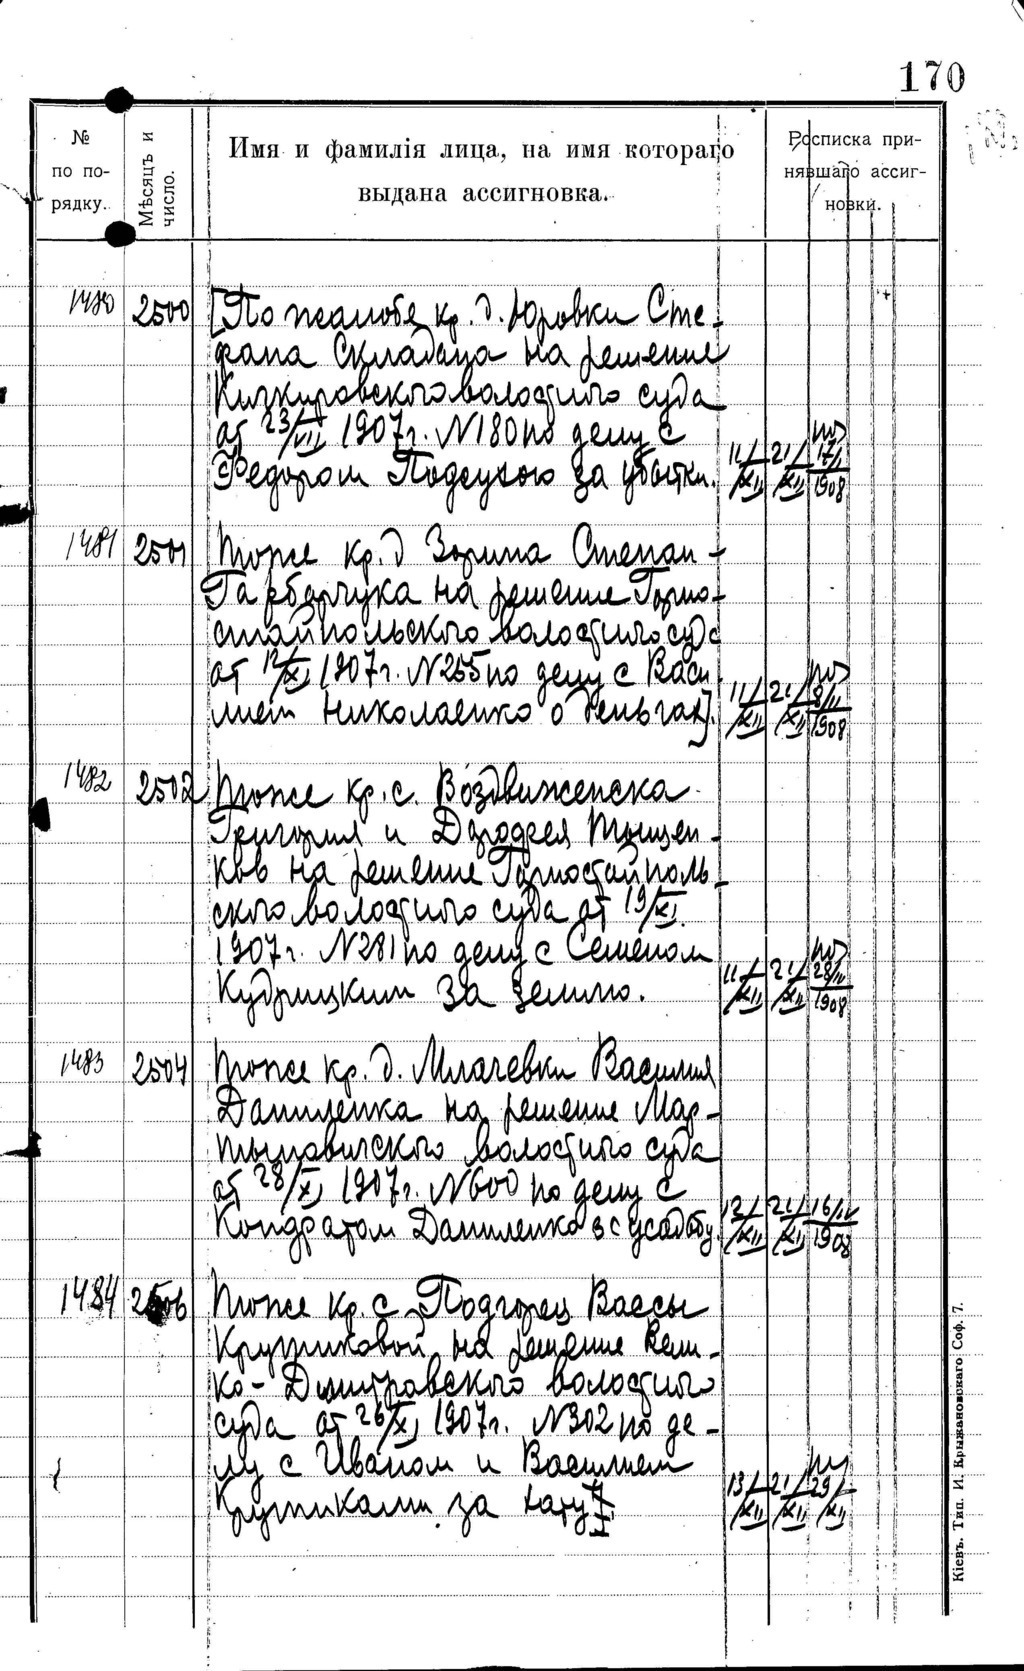 170
№ по порядку.
Мѣсяцъ и число.
Имя и фамилія лица, на имя котораго
выдана ассигновка.
Росписка при-
нявшаго ассиг-
новки.
1480 2500 [По жалобе кр. д. Юровки Сте-
фана Складана на решение
волостного суда
от 23/VII 1907 г. N180 по делу с
Федором за убытки. 11/XII 21/XII 17/I 1908
1481 2501 Тоже кр. д Зорина Степан-
Гарбарчука на решение Горно-
стайпольского волостного суда
от 12/XI 1907 г. N255 по делу с Васи-
лием Николаенко о деньгах]. 11/XII 21/XII 8/II 1908
1482 2502 Тоже кр. с. Воздвиженска
Григория и Дорофея Тищен-
ков на решение Горностайполь-
ского волостного суда от 19/XI
1907 г. N281 по делу с Семеном
Кудрицким за землю. 11/XII 21/XII 28/II 1908
1483 2504 Тоже кр. д. Млачевки Василия
Даниленка на решение Мар-
тыновичского волостного суда
от 28/XI 1907 г. N600 по делу с
Кондратом Даниленко за усадьбу. 12/XII 21/XII 16/IV 1908
1484 2506 Тоже кр. с. Подгорец Вассы
Кружиковой на решение Вели-
ко-Дмитровского волостного
суда от 26/XI 1907 г. N302 по де-
лу с Иваном и Василием
Кружиками за хату 13/XII 21/XII 29/XII
Кіевъ. Тип. И. Крыжановскаго Соф. 7.